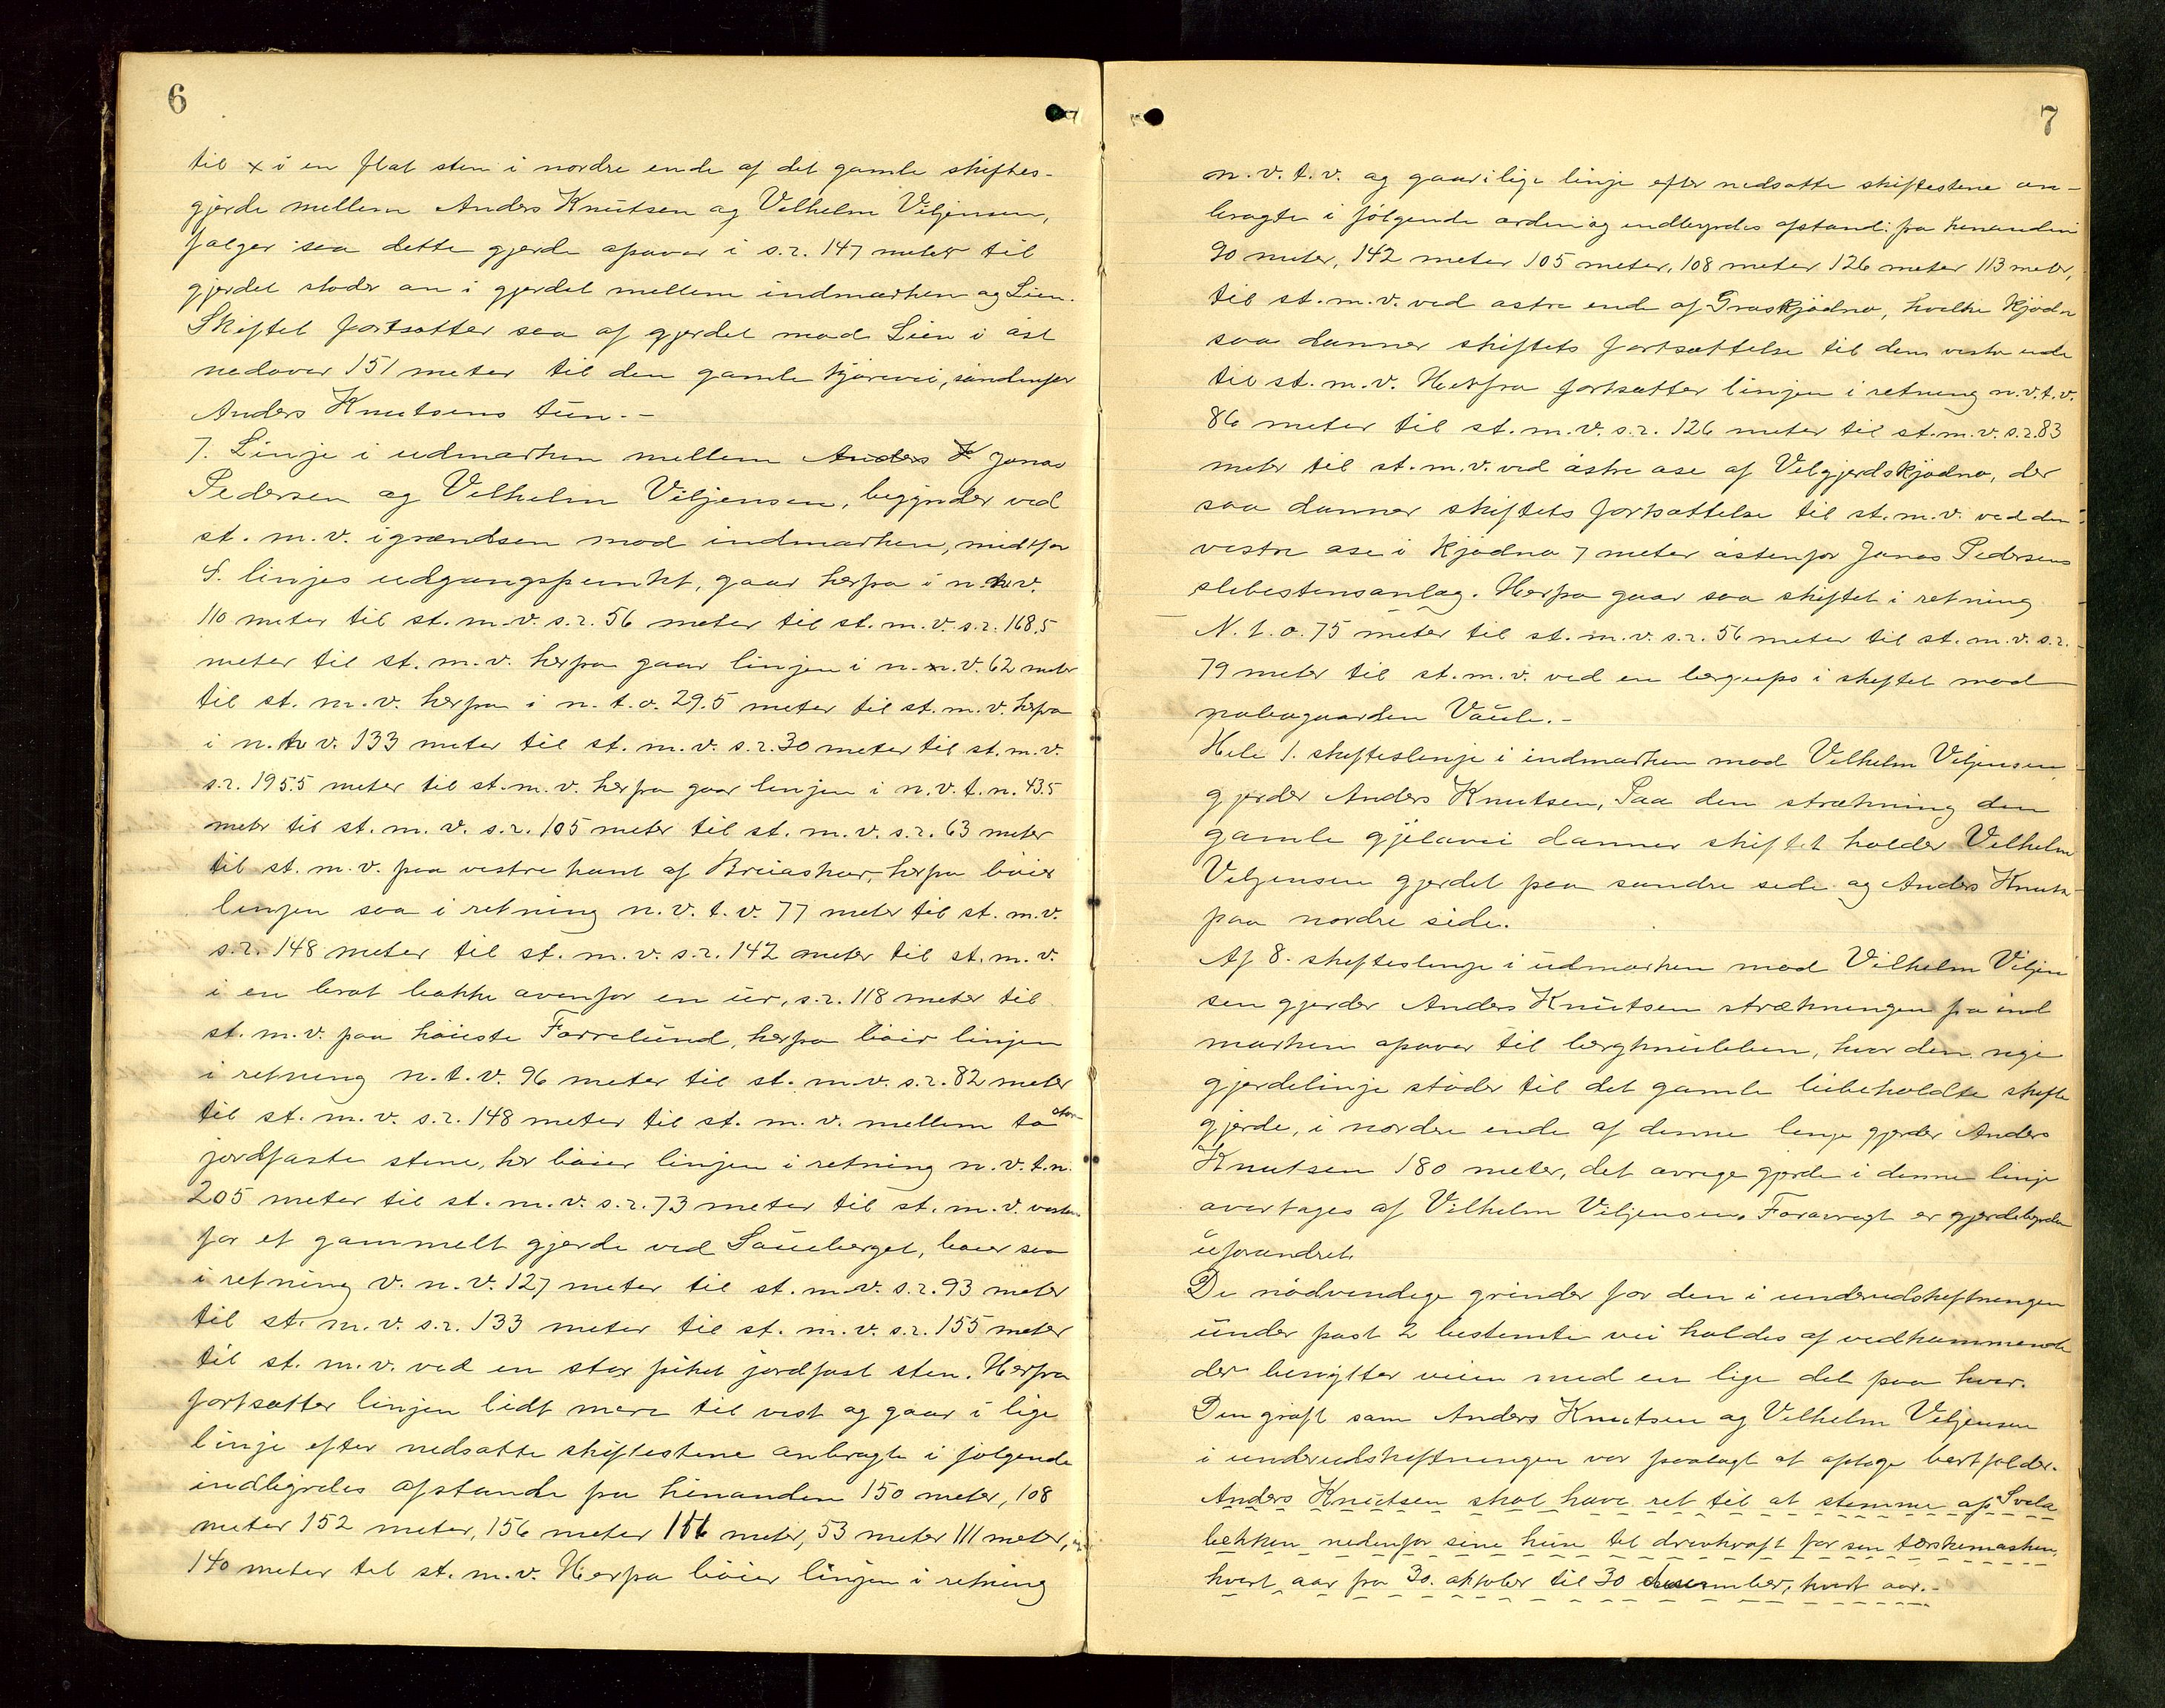 6
til x i en flat sten i nordre ende af det gamle skiftes-
gjerde mellem Anders Knutsen og Velhelm Viljensen,
følger saa dette gjerde opover i s.r. 147 meter til
gjerdet støder an i gjerdet mellem indmarken og Lien.
Skiftet fortsætter saa af gjerdet mod Lien i øst
nedover 151 meter til den gamle kjørevei, søndenfor
Anders Knutsens tun.-
7. Linje i udmarken mellem Anders K Jonas
Pedersen og Velhelm Viljensen, begynder ved
st. m. v. i grændsen mod indmarken, midt for
S. linjes udgangspunkt, gaar herfra i n. v.
110 meter til st. m. v. s.r. 56 meter til st. m. v. s.r. 168,5
meter til st. m. v. herfra gaar linjen i n. n. v. 62 meter
til st. m. v. herfra i n. t. o. 29.5 meter til st. m. v. herfra
i n. tv v. 133 meter til st. m. v. s.r. 30 meter til st. m. v.
s.r. 195.5 meter til st. m. v. herfra gaar linjen i n. v. t. n. 43.5
meter til st. m. v. s.r. 105 meter til st. m. v. s.r. 63 meter
til st. m. v. paa vestre kant af Breiaskar, herfra bøier
linjen saa i retning n. v. t. v. 77 meter til st. m. v.
s.r. 148 meter til st. m. v. s.r. 142 meter til st. m. v.
i en brat bakke ovenfor en ur, s.r. 118 meter til
st. m. v. paa høieste Forrelund, herfra bøier linjen
i retning n. t. v. 96 meter til st. m. v. s.r. 82 meter
til st. m. v. s.r. 148 meter til st. m. v. mellem to store
jordfaste stene, her bøier linjen i retning n. v. t. n.
205 meter til st. m. v. s.r. 73 meter til st. m. v. vesten-
for et gammelt gjerde ved Saueberget, bøier saa
i retning v. n. v. 127 meter til st. m. v. s.r. 93 meter
til st. m. v. s.r. 133 meter til st. m. v. s.r. 155 meter
til st. m. v. ved en stor firket jordfast sten. Herfra
fortsætter linjen lidt mere til vest og gaar i lige
linje efter nedsatte skiftestene anbragte i følgende
indbyrdes afstande fra hinanden 150 meter, 108
meter 152 meter, 156 meter 156 meter, 53 meter 111 meter, og
140 meter til st. m. v. Herfra bøier linjen i retning
7
n. v. t. v. og gaar i lige linje efter nedsatte skiftestene an-
bragte i følgende orden og indbyrdes afstand: fra hinanden
90 meter, 142 meter 105 meter, 108 meter 126 meter 113 meter,
til st. m. v. ved østre ende af Graskjødno, hvilke Kjødn
saa danner skiftets fortsættelse til dens vestre ende
til st. m. v. Herfra fortsætter linjen i retning n. v. t. v.
86 meter til st. m. v. s.r. 126 meter til st. m. v. s.r. 83
meter til st. m. v. ved østre ose af Velgjerdskjødno, der
saa danner skiftets fortsættelse til st. m. v. ved den
vestre ose i Kjødno 7 meter østenfor Jonas Pedersens
slibestensanlæg. Herfra gaar saa skiftet i retning
N. t. o. 75 meter til st. m. v. s.r. 56 meter til st. m. v. s.r.
79 meter til st. m. v. ved en bergnips i skiftet mod
nabogaarden Vaule.-
Hele 1. skifteslinje i indmarken mod Velhelm Viljensen
gjerder Anders Knutsen, Paa den strækning den
gamle gjelavei danner skiftet holder Velhelm
Veljensen gjerdet paa søndre side og Anders Knuts
paa nordre side.
Af 8. skifteslinje i udmarken mod Vilhelm Viljen
sen gjerder Anders Knutsen strækningen fra ind
marken opover til bergknibben, hvor den nye
gjerdelinje støder til det gamle bibeholdte skifte
gjerde, i nordre ende af denne linje gjerder Anders
Knutsen 180 meter, det øvrige gjerde i denne linje
overtages af Vilhelm Viljensen. Forøvrigt er gjerdebyrden
uforandret.
De nødvendige grinder for den i underudskiftningen
under post 2 bestemte vei holdes af vedkommende
der benytter veien med en lige del paa hver.
Den grøft som Anders Knutsen og Velhelm Veljensen
i underudskiftningen var paalagt at optage bortfalder.
Anders Knutsen skal have ret til at stemme op Svela
bekken nedenfor sine hus til drivkraft for sin tærskemaskin,
hvert aar fra 30. oktober til 30 desember, hvert aar.-